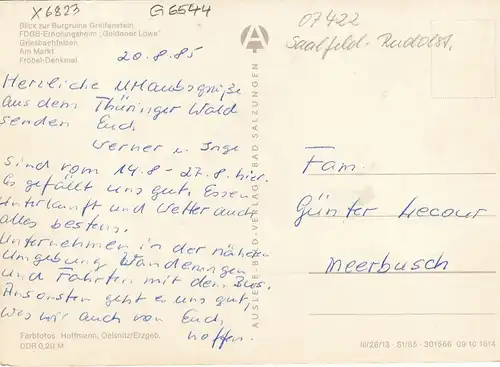 X6823
G6544
07422
Saalfeld-Rudolst.
Blick zur Burgruine Greifenstein
FDGB-Erholungsheim „Goldener Löwe"
Griesbachfelsen
Am Markt
Fröbel-Denkmal
20.8.85
Herzliche Urlaubsgrüße
aus dem Thüringer Wald
senden Euch
Werner u. Inge
Sind vom 14.8-27.8. hier.
Es gefällt uns gut. Essen,
Unterkunft und Wetter auch
alles bestens.
Unternehmen in der näheren
Umgebung Wanderungen
und Fahrten mit dem Bus.
Ansonsten geht es uns gut,
was wir auch von Euch
hoffen.
Farbfotos: Hoffmann, Oelsnitz/Erzgeb.
DDR 0,20 M
AUSLESE-BILD-VERLAG BAD SALZUNGEN
Fam.
Günter Lecour
Meerbusch
III/26/13 · S1/85 · 301566 09 10 1614